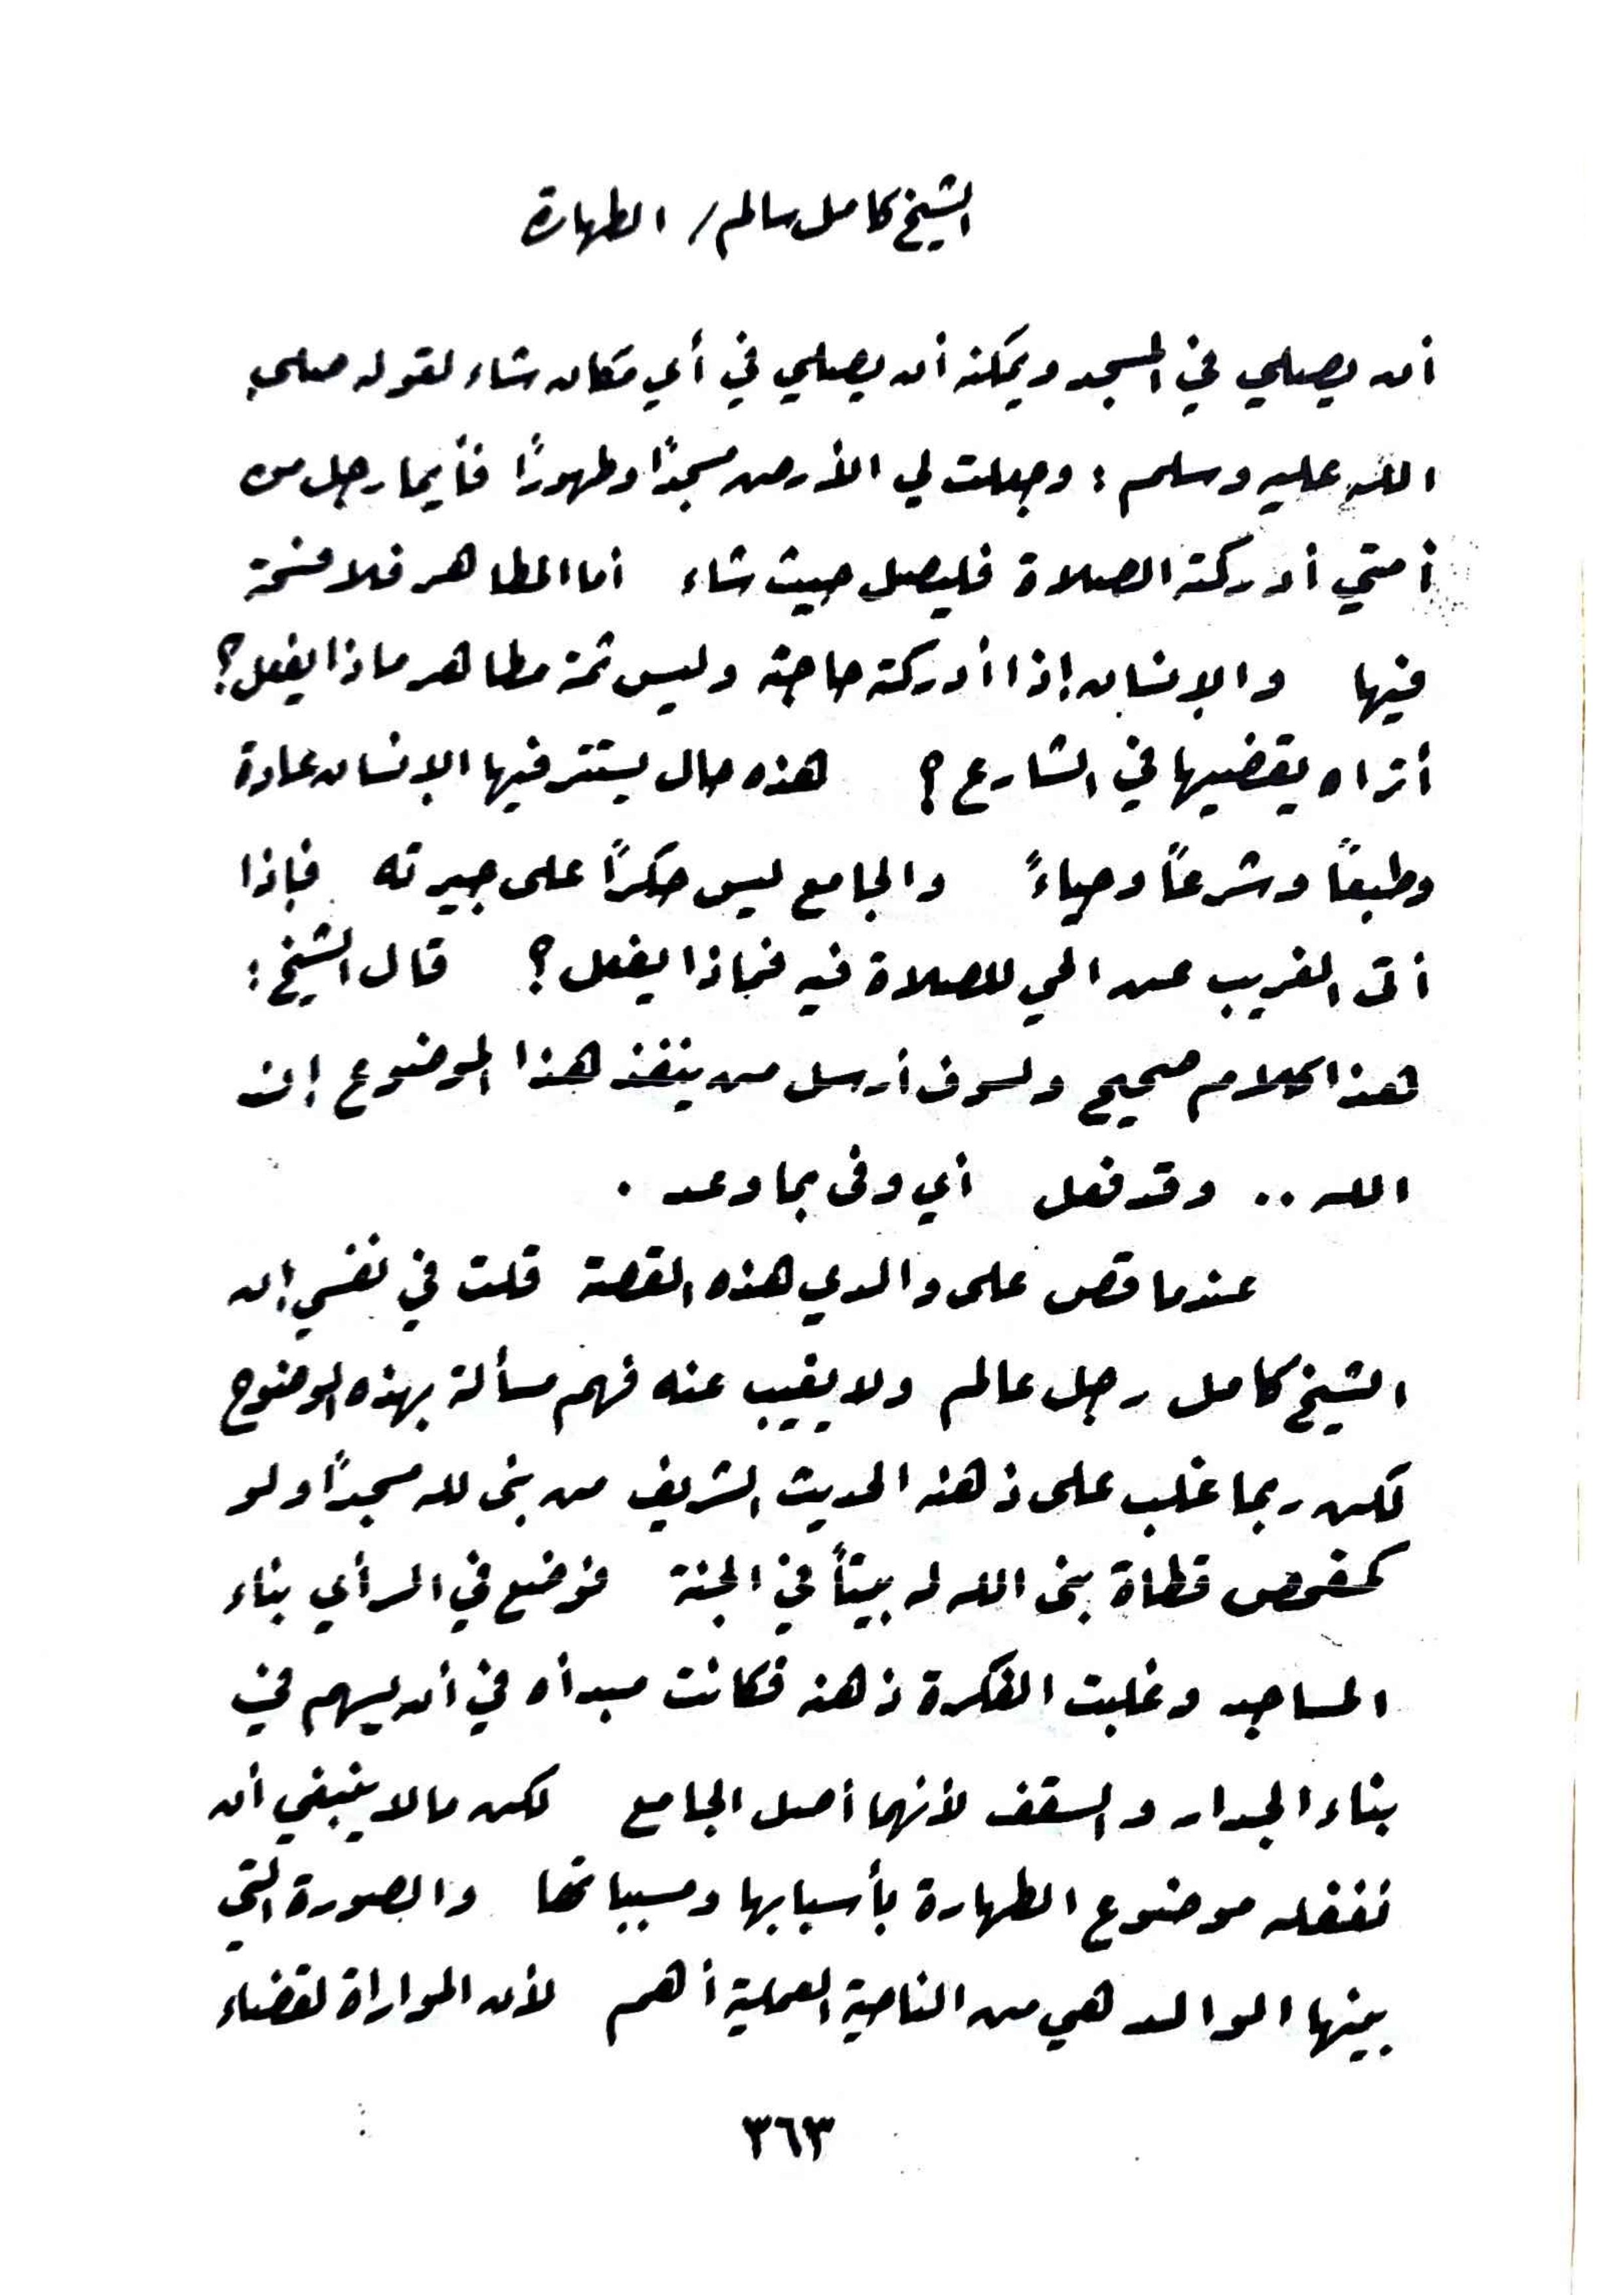 الشيخ كامل سالم / الطهارة
أن يصلي في المسجد ويمكنه أن يصلي في أي مكان شاء لقوله صلى
الله عليه وسلم : وجعلت لي الأرض مسجدًا وطهورًا فأيما رجل من
أمتي أدركته الصلاة فليصل حيث شاء أما المطاهر فلا فسحة
فيها والإنسان إذا أدركته حاجته وليس ثمة مطاهر ماذا يفعل؟
أتراه يقضيها في الشارع ؟ هذه حال يستتر فيها الإنسان عادة
وطبعًا وشرعًا وحياءً والجامع ليس حكرًا على جيرته فإذا
أتى الغريب عن الحي للصلاة فيه فماذا يفعل ؟ قال الشيخ :
هذا كلام صحيح ولسوف أرسل من ينفذ هذا الموضوع إن شاء
الله .. وقد فعل أي وفى بما وعد .
عندما قص على والدي هذه القصة قلت في نفسي إن
الشيخ كامل رجل عالم ولا يغيب عنه فهم مسألة بهذه الوضوح
لكن ربما غلب على ذهنه الحديث الشريف من بنى لله مسجدًا ولو
كمفحص قطاة بنى الله له بيتًا في الجنة فوضع في الرأي بناء
المساجد وغلبت الفكرة ذهنه فكانت مبدأه في أن يسهم في
بناء الجدار والسقف لأنهما أصل الجامع لكن ما لا ينبغي أن
نغفله موضوع الطهارة بأسبابها ومسبباتها والصورة التي
بينها الوالد هي من الناحية العملية أهم لأن المواراة لقضاء
٣٦٣